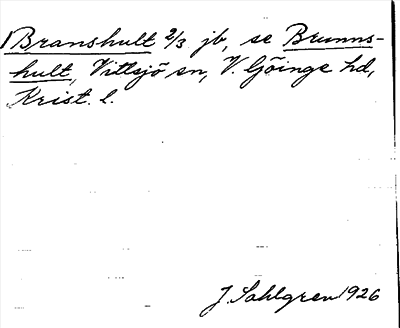 Branshult 2/3 jb, se Brunns-
hult, Vittsjö sn, V. Göinge hd,
Krist. l.
J. Sahlgren 1926